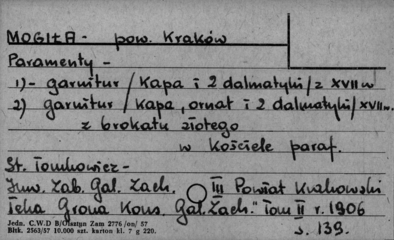 MOGIŁA - pow. Kraków
Paramenty -
1)- garnitur /kapa i 2 dalmatyki/z XVII w
2) garnitur /kapa, ornat i 2 dalmatyki/XVII w.
z brokatu złotego
w Kościele paraf.
St. Tomkowicz -
Inw. Zab. Gal. Zach. III Powiat Krakowski
Teka Grona Kons. Gal. Zach." Tom II r. 1906
s. 139.
Jedn. C.W.D B/Olsztyn Zam 2776/on/ 57
Bltk. 2563/57 10.000 szt. karton kl. 7 g 220.